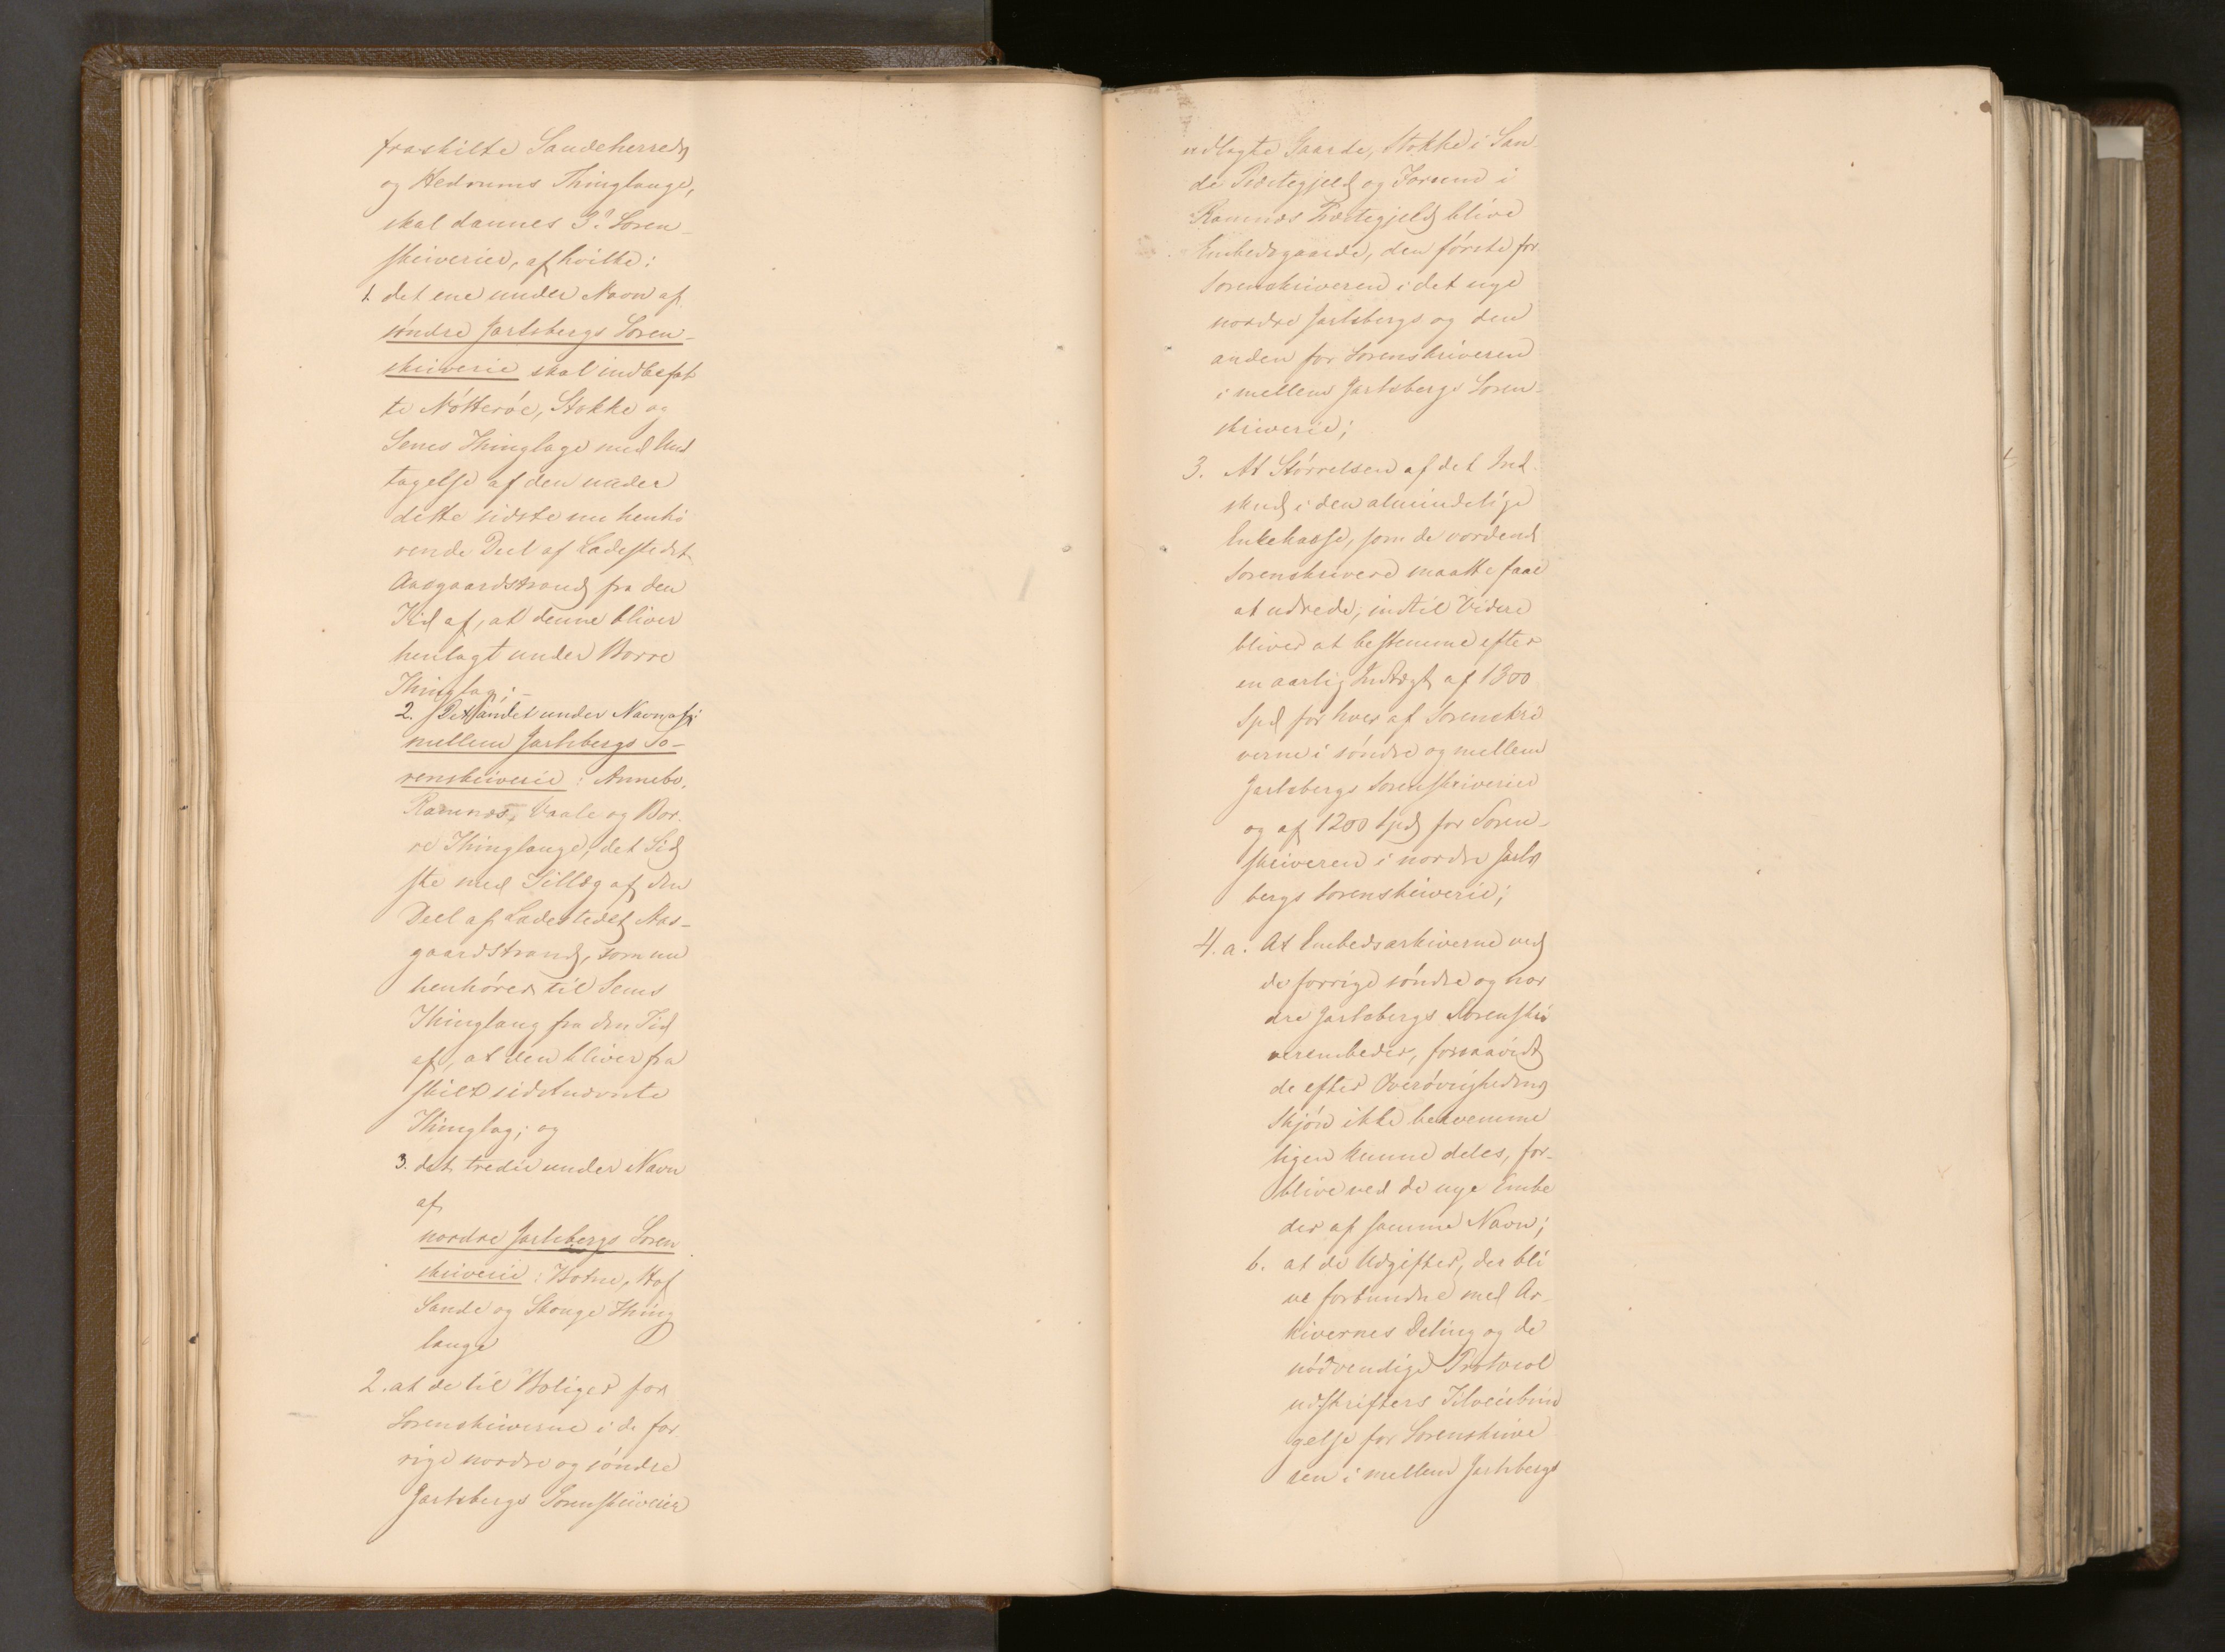 fraskilte Sandeherreds
og Hedrums Thinglauge,
skal dannes 3de Soren-
skriverier, af hvilke:
1. det ene under Navn af
søndre Jarlsbergs Soren-
skriverie skal indbefat
te Nøtterøe, Stokke og
Sems Thinglage med Und
tagelse af den under
dette sidste nu henhø
rende Deel af Ladestedet
Aasgaardstrand fra den
Tid af, at denne bliver
henlagt under Borre
Thinglag; -
2. Det andet under Navn af:
mellem Jarlsbergs So-
renskriverie: Annebo,
Ramnæs, Vaale og Bor-
re Thinglauge, det Sid
ste med Tillæg af den
Deel af Ladestedet Aas-
gaardstrand, som nu
henhører til Sems
Thinglaug fra den Tid
af, at den bliver fra
skilt sidstnævnte
Thinglag; og
3. det tredie under Navn
af
nordre Jarlsbergs Soren
skriverie: Botne, Hof
Sande og Skouge Thing
lauge
2. at de til Boliger for
Sorenskriverne i de for
rige nordre og søndre
Jarlsbergs Sorenskriverier
udlagte Gaarde, Stokke i San
de Præstegjeld og Forum i
Ramnæs Præstegjeld blive
Embedsgaarde, den første for
Sorenskriveren i det nye
nordre Jarlsbergs og den
anden for Sorenskriveren
i mellem Jarlsbergs Soren-
skriverie;
3. At Størrelsen af det Ind-
skud i den almindelige
Enkekasse, som de vordende
Sorenskrivere maatte faae
at udrede, indtil Videre
bliver at bestemme efter
en aarlig Indtægt af 1300
Spd for hver af Sorenskri
verne i søndre og mellem
Jarlsbergs Sorenskriverier
og af 1200 Spd for Soren-
skriveren i nordre Jarls
bergs Sorenskriverie;
4. a. At Embedsarkiverne ved
de forrige søndre og nor
dre Jarlsbergs Sorenskri
verembeder, forsaavidt
de efter Overøvrighedens
Skjøn ikke bekvemme
ligen kunne deles, for-
blive ved de nye Embe
der af samme Navn;
b. at de Udgifter, der bli
ve forbundne med Ar-
kivernes Deling og de
nødvendige Protocol
udskrifters Tilveiebrin
gelse for Sorenskrive
ren i mellem Jarlsbergs